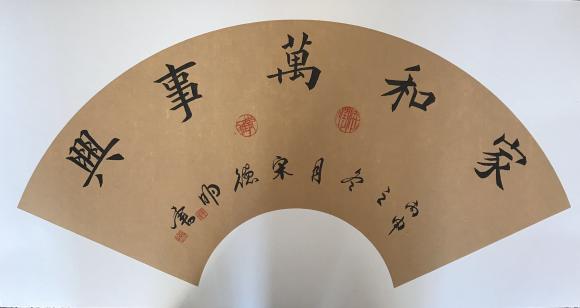 家和萬事興
丙申之冬月宋德明書